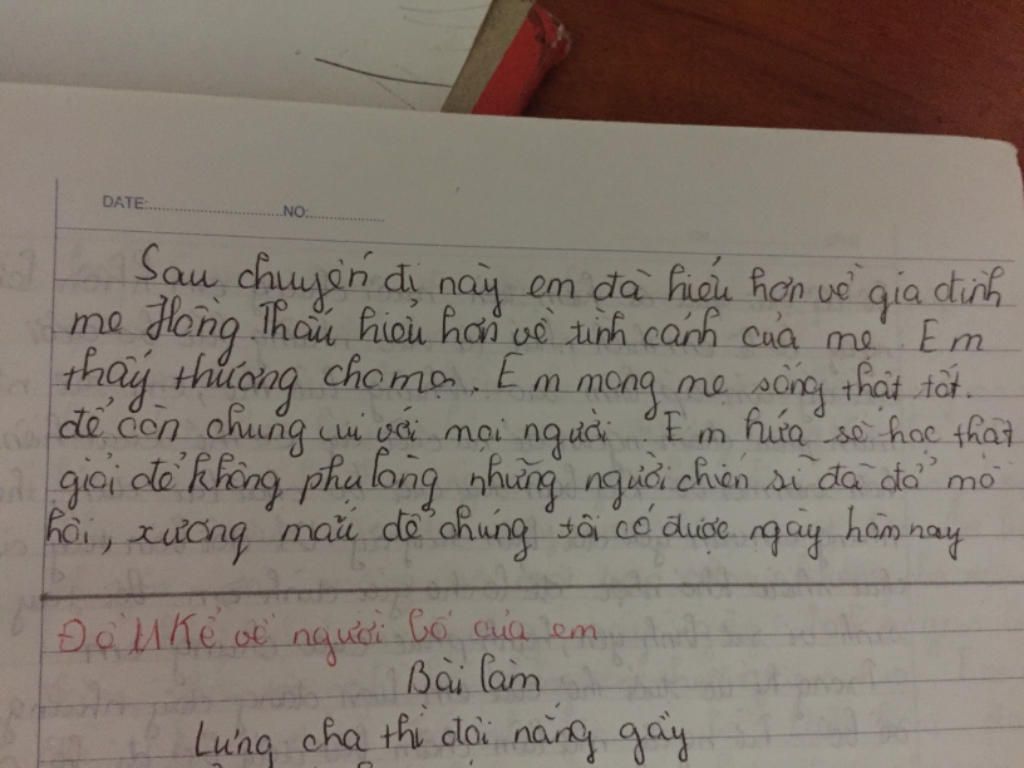 DATE: NO:
Sau chuyến đi này em đã hiểu hơn về gia đình
mẹ Hồng. Thấu hiểu hơn về tình cảnh của mẹ. Em
thấy thương cho mẹ. Em mong mẹ sống thật tốt.
để còn chung vui với mọi người. Em hứa sẽ học thật
giỏi để không phụ lòng những người chiến sĩ đã đổ mồ
hôi, xương máu để chúng tôi có được ngày hôm nay
Kể về người bố của em
Bài làm
Lưng cha thì dài nắng gầy